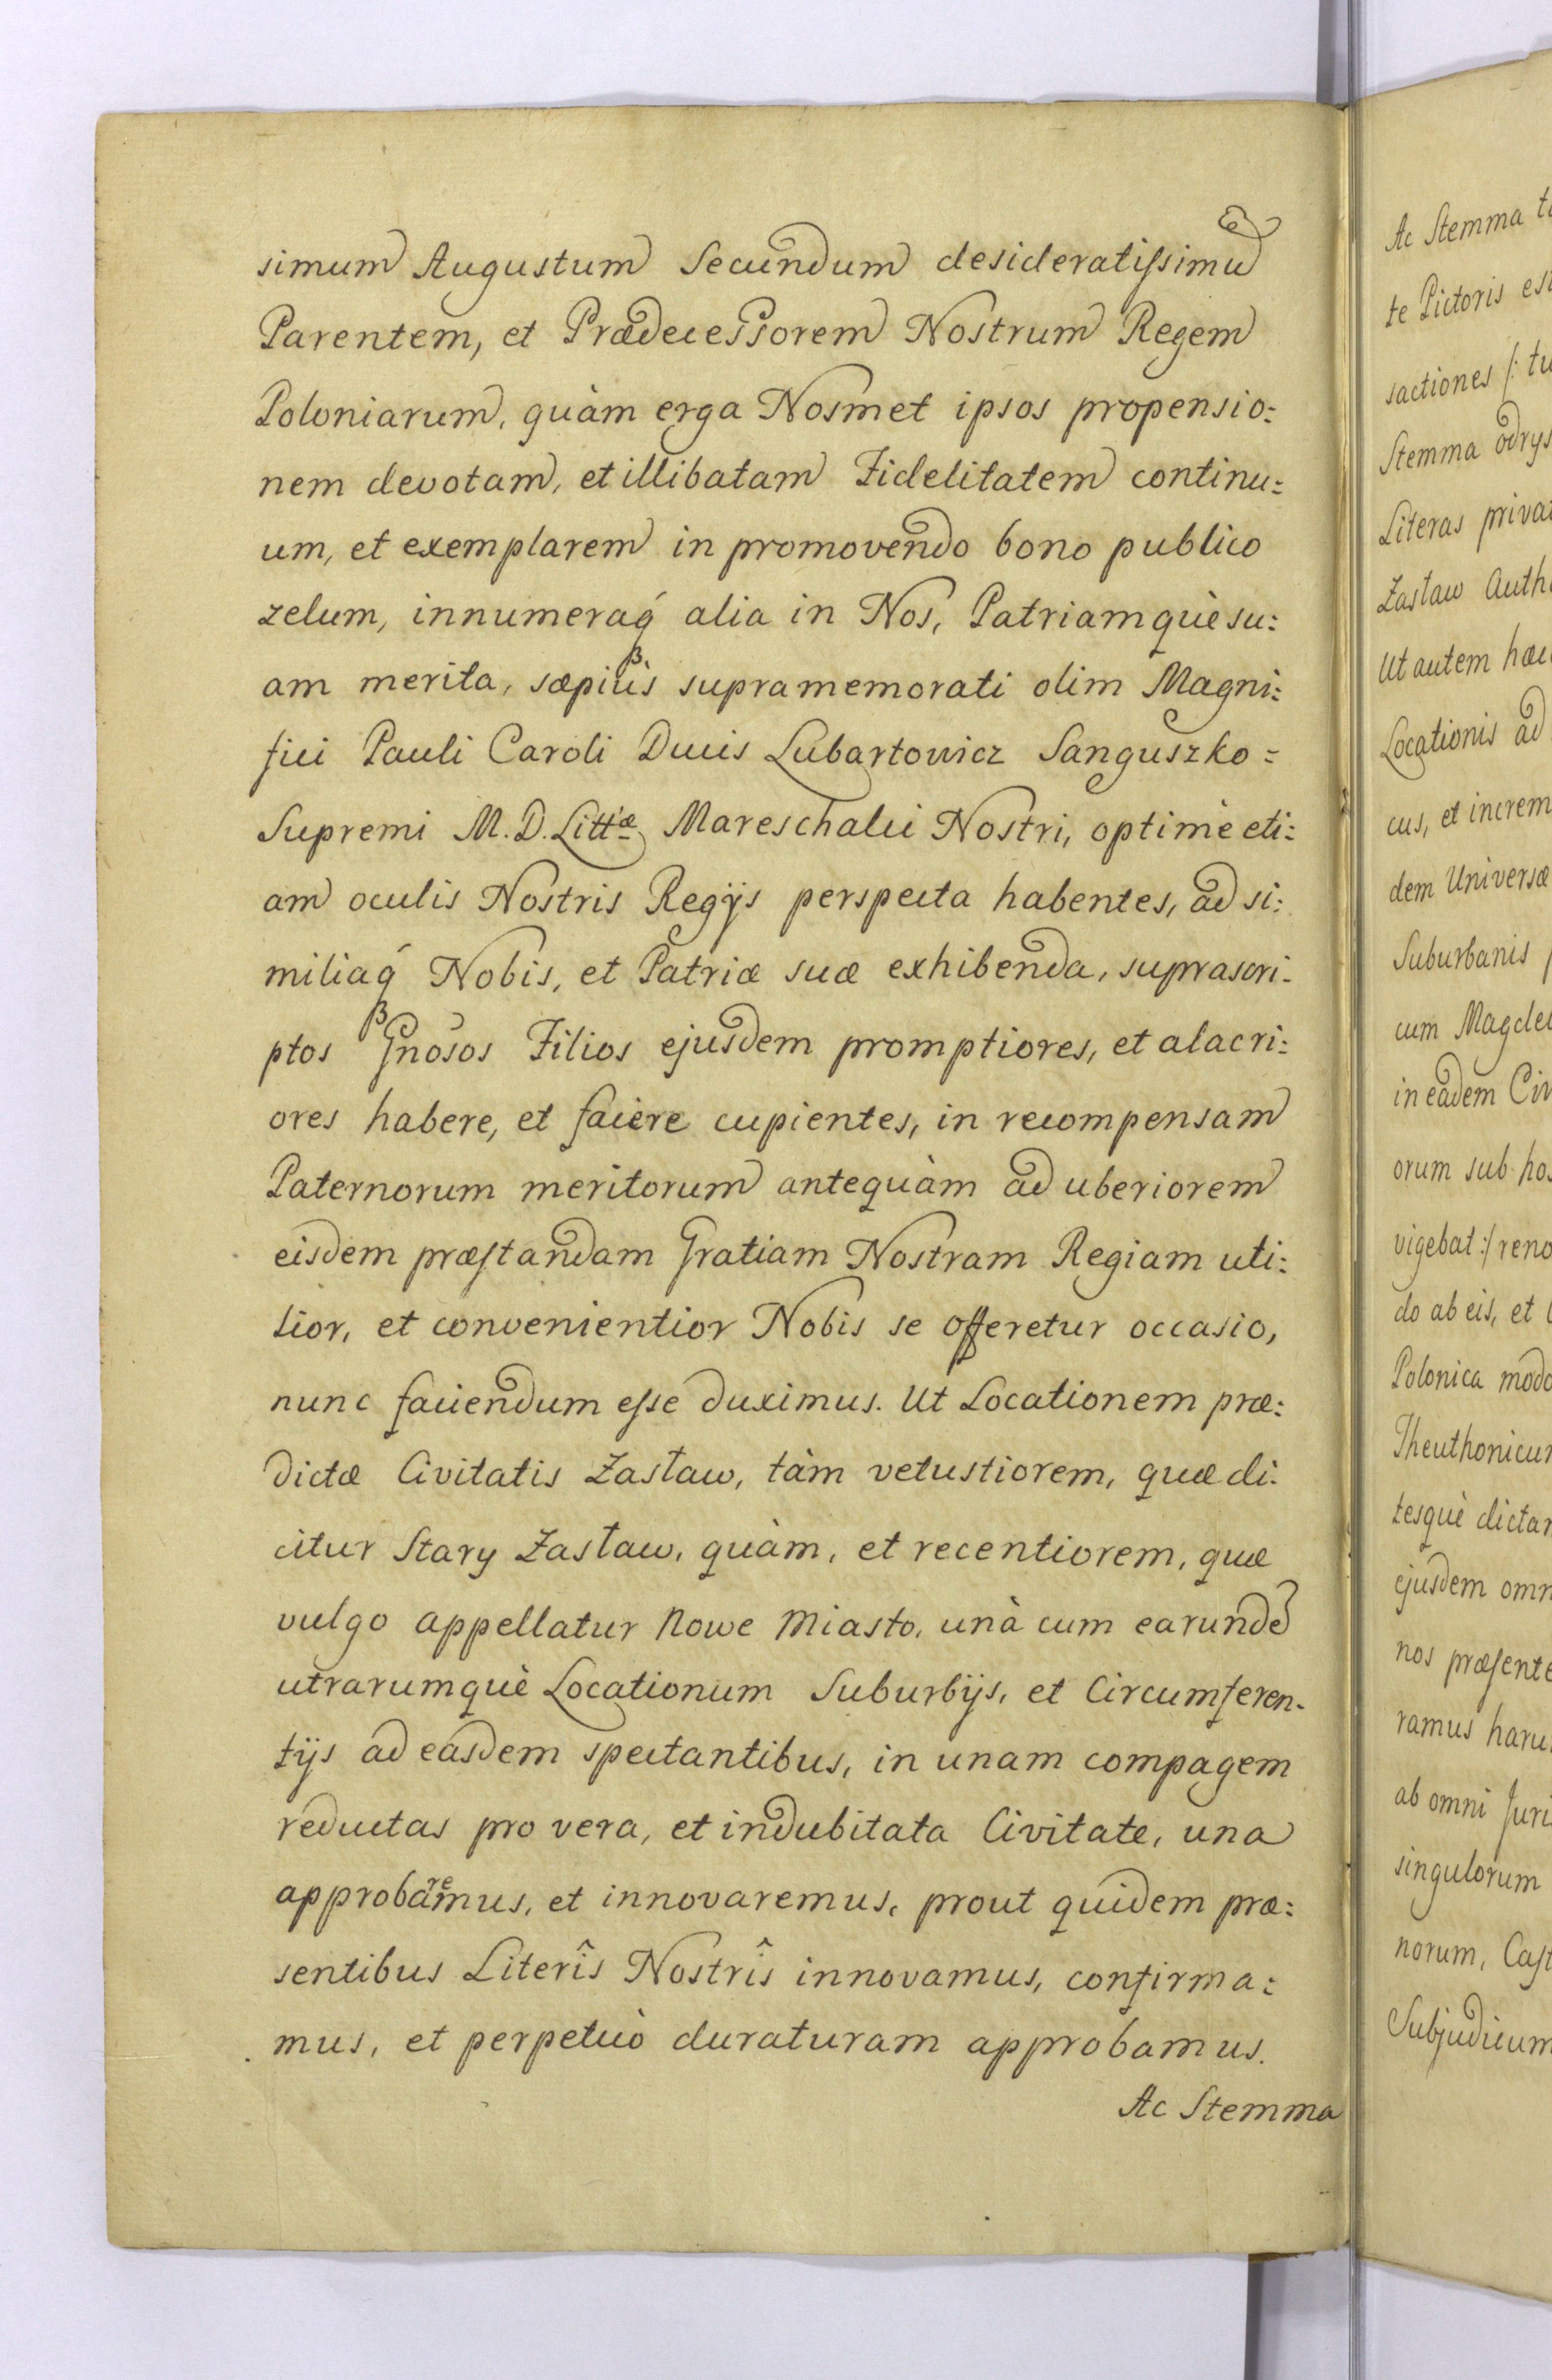 simum Augustum Secundum desideratissimū
Parentem, et Prædecessorem Nostrum Regem
Poloniarum, quàm erga Nosmet ipsos propensio:
nem devotam, et illibatam Fidelitatem continu:
um, et exemplarem in promovendo bono publico
zelum, innumeraq́ alia in Nos, Patriamquè su:
am merita, sæpiùs supramemorati olim Magni:
fici Pauli Caroli Ducis Lubartowicz Sanguszko=
Supremi M. D. Litt:æ Mareschalci Nostri, optimè eti:
am oculis Nostris Regÿs perspecta habentes, ad si:
miliaq́ Nobis, et Patriæ suæ exhibenda, suprascri:
ptos Gnosos Filios ejusdem promptiores, et alacri:
ores habere, et facere cupientes, in recompensam
Paternorum meritorum antequàm ad uberiorem
eisdem præstandam Gratiam Nostram Regiam uti:
lior, et convenientior Nobis se offeretur occasio,
nunc faciendum esse duximus. Ut Locationem præ:
dictæ Civitatis Zasław, tàm vetustiorem, quæ di:
citur Stary Zasław, quàm, et recentiorem, quæ
vulgo appellatur Nowe Miasto, unà cum earundē
utrarumquè Locationum Suburbijs, et Circumferen-
tijs ad easdem spectantibus, in unam compagem
reductas pro vera, et indubitata Civitate, una
approbaremus, et innovaremus, prout quidem præ:
sentibus Literîs Nostrîs innovamus, confirma:
mus, et perpetuò duraturam approbamus.
Ac Stemma
Ac Stemma
te Pictoris
sactiones /: tu
Stemma odrys
Literas priva
Zasław Auth
Ut autem hæc
Locationis ad
cus, et increm
dem Universæ
Suburbanis
cum Magde
in eadem Civ
orum sub hos
vigebat :/ reno
do ab eis, et
Polonica modo
Theuthonicum
tesquè dictar
ejusdem omn
nos præsente
ramus haru
ab omni Juri
singulorum
norum, Cast
Subjudicum